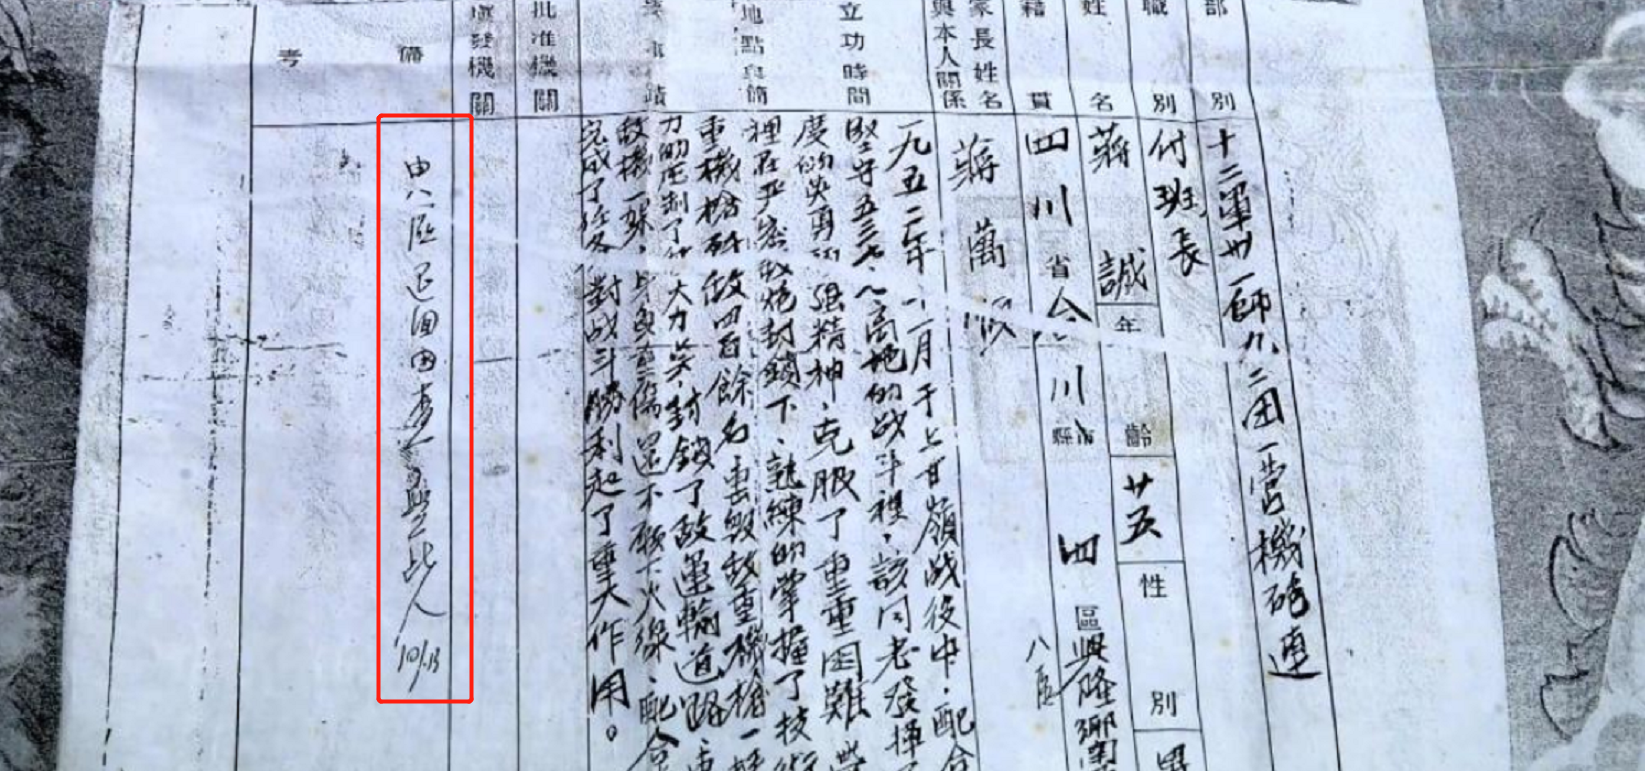 部別
十二軍卅一師九二团一营機砲連
職別
付班長
姓名
蔣誠
年齡
廿五
性別
男
籍貫
四川省合川縣市
四區興隆鄉
八區
家長姓名
與本人關係
蔣萬順
立功時間
地點與簡
事蹟
一九五二年十一月于上甘嶺战役中，配合
坚守五三七、八高地的战斗裡，該同志發揮了
度的英勇顽强精神，克服了重重困難
裡在严密敌炮封鎖下，熟練的掌握了技術
重機槍敌四百餘名，击毁敌重機槍一挺
力的压制了火力点，封鎖了敌運輸道路，
敌機一架，身負重伤還不愿下火線，配合
完成了任务，對战斗勝利起了重大作用。
批准機關
填發機關
備考
由八區退回因查無此人 10/13